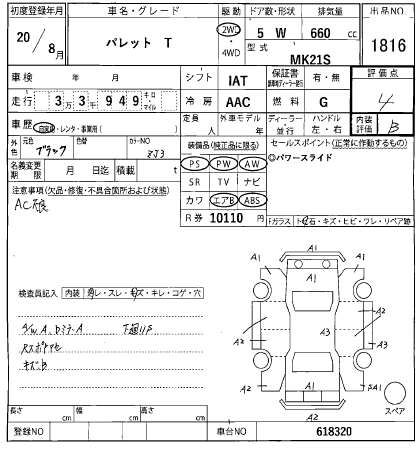 初度登録年月 車名・グレード 駆動 ドア数・形状 排気量 出品NO
20/8月 パレット T 2WD・4WD 5 W 660 cc 1816
型式 MK21S
車検 年 月 シフト IAT 保証書 有・無 評価点
走行 3万3千949 キロ・マイル 冷房 AAC 燃料 G 4
車歴 自家用・レンタ・事業用( ) 定員 人 外車モデル 年 ディーラー・並行 ハンドル 左・右 内装評価 B
外色 元色 ブラック カラーNO ZJ3 装備品(純正品に限る) セールスポイント(正常に作動するもの)
名義変更期限 月 日迄 積載 t PS PW AW ◎パワースライド
注意事項(欠品・修復・不具合箇所および状態) SR TV ナビ
カワ エアB ABS
R券 10110 円 Fガラス トビ石・キズ・ヒビ・ワレ・リペア跡
A1
A1
A1
検査員記入 内装 スレ・キズ・キレ・コゲ・穴
A2 A3 A2
A3
キズB
A2 A1
A1
A2
スペア
長さ cm 幅 cm 高さ cm
登録NO 車台NO 618320